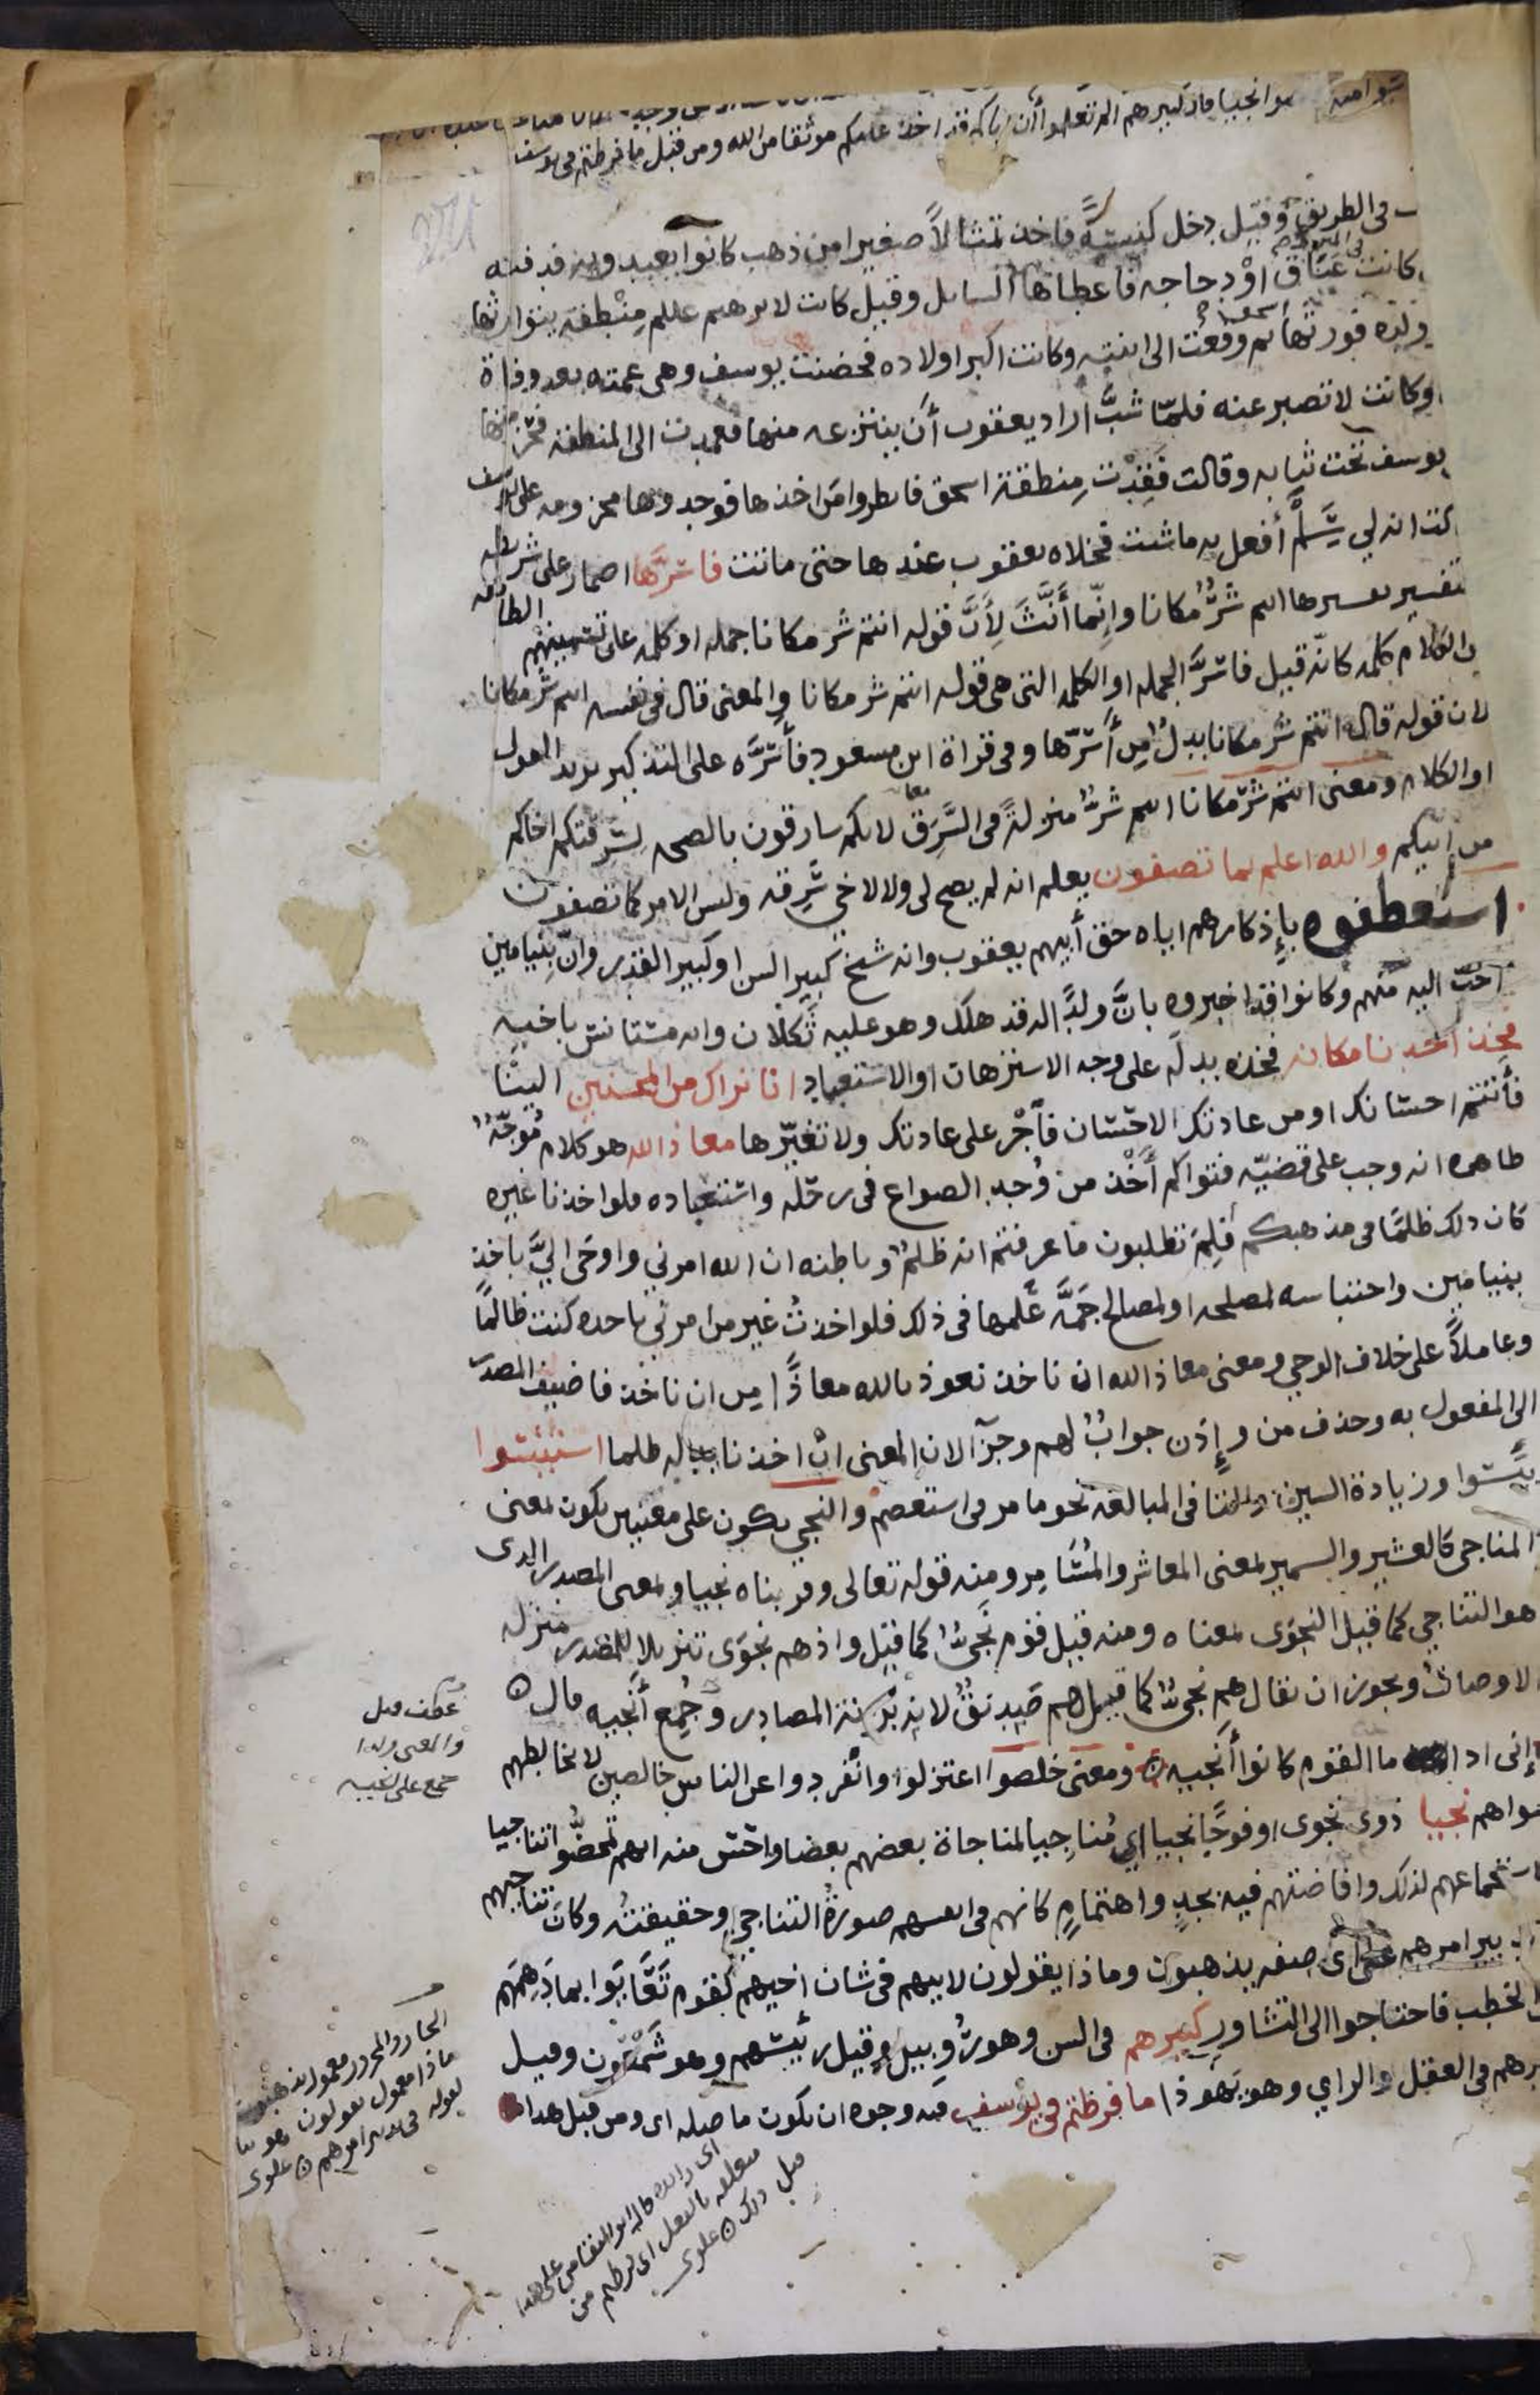 نجيا قال كبيرهم الم تعلموا أن اباكم قد اخذ عليكم موثقا من الله ومن قبل ما فرطتم في يوسف
في الطريق وقيل دخل كنيسة فاخذ تمثالاً صغيرا من ذهب كانوا يعبدونه فدفنه
كانت في المنزل عَنَاق اوْ دجاجه فاعطاها السايل وقيل كانت لابرهيم عللم مِنْطَقة يتوارثها
ولده فورثها اسحق ثم وقعت الى ابنته وكانت اكبر اولاده فحضنت يوسف وهى عمته بعد وفاة
وكانت لا تصبر عنه فلمّا شبَّ اراد يعقوب أن ينتزعه منها فعمدت الى المنطقة فحزمتها
يوسف تحت ثيابه وقالت فَقِدْت مِنطقة اسحق فانظروا مَن اخذها فوجدوها محزومه على يوسف
لت انه لي سَلَمٌ أفعل به ما شئت فخلاه يعقوب عندها حتى ماتت فاسَرَّها اضمار على شريطه
تفسير تفسيرها انتم شرٌّ مكانا وإنّما أنَّثَ لأنَّ قوله انتم شر مكانا جمله او كلمه على تسميتهم الطايفه
من الكلام كلمه كانّه قيل فاسَرَّ الجمله او الكلمه التى هى قوله انتم شر مكانا والمعنى قال في نفسه انتم شر مكانا
لان قوله قال انتم شر مكانا بدلٌ مِن أسَرّها وفى قراة ابن مسعود فأسَرَّه على التذكير يريد القول
او الكلام ومعنى انتم شرٌّ مكانا انتم شرٌّ منزلةً فى السَّرِق لانكم سارقون بالصحه لسَرقتكم اخاكم
من ابيكم والله اعلم بما تصفون يعلم انه لم يصح لى ولا لاخي سَرِقه وليس الامر كما تصفون
استعطفوه بإذكارهم اياه حق أبيهم يعقوب وانه شيخ كبير السن او كبير القدر وانّ بنيامين
احبّ اليه منهم وكانوا قد اخبروه بانَّ ولدًا له قد هلك وهو عليه ثَكْلان وانه مستانس باخيه
فخذ احدنا مكانه فخذه بدله على وجه الاسترهان او الاستعباد انا نراك من المحسنين الينَا
فأتمم احسانك او من عادتك الاحسان فاجْر على عادتك ولا تغيّرها معاذ الله هو كلام مُوجَّهٌ
ظاهره انه وجب على قضيّه فتواكم أَخْذ من وُجد الصواع فى رحله واستعباده فلو اخذنا غيره
كان ذلك ظلمًا فى مذهبكم فلِمَ تطلبون ما عرفتم انه ظلمٌ وباطنه ان الله امرني واوحَى اليَّ باخذ
بنيامين واحتباسه لمصلحه او لمصالح جَمَّه عَلمها في ذلك فلو اخذتُ غير من امرني باخذه كنت ظالمًا
وعاملاً على خلاف الوحي ومعنى معاذ الله ان ناخذ نعوذ بالله معاذًا مِن ان ناخذ فاضيف المصدر
الى المفعول به وحذف من وإذَن جوابٌ لهم وجزآ لان المعنى ان اخذنا بدله ظلمنا استيئسوا
يئسوا وزيادة السين والتا فى المبالغه نحو ما مر فى استعصم والنجي يكون على معنيين يكون بمعنى
المناجى كالعشير والسمير بمعنى المعاشر والمُسَامِر ومنه قوله تعالى وقربناه نجيا وبمعنى المصدر الذى
هو التناجي كما قيل النجوَى بمعناه ومنه قيل قوم نَجيٌّ كما قيل واذ هم نجوَى تنزيلا للمصدر منزله
لاوصاف ويجوز ان يقال هم نجىٌّ كما قيل هم صَديقٌ لانه بزِنة المصادر وجُمِع أنجيه قال
إنى اذا ما القوم كانوا أَنجيه ومعنى خلصوا اعتزلوا وانفردوا عن الناس خالصين لا يخالطهم
سواهم نجيا ذوى نجوى او فوجًا نجيا اى مُناجِيا لمناجاة بعضهم بعضا واحسن منه انهم تمحضُّوا تناجيا
لاستجماعهم لذلك وافاضتهم فيه بجدٍ واهتمامٍ كانهم فى انفسهم صورةُ التناجي وحقيقتُه وكان تناجيهم
فى تدبير امرهم على اى صفه يذهبون وماذا يقولون لابيهم فى شان اخيهم كقوم تَعَايَوا بما دَهِمَهم
من الخطب فاحتاجوا الى التشاور كبيرهم فى السن وهو رُوبيل وقيل رئيسُهم وهو شَمْعُون وقيل
كبيرهم فى العقل والراي وهو يَهُوذا ما فرطتم فى يوسف فيه وجوه ان تكون ما صله اى ومن قبل هذا
عطف قيل
والمعنى ولذا
جمع على انجيه
الجار والمجرور معمول يذهبون
ماذا معمول يقولون وهو بيا
لقوله فى تدبير امرهم علوى
اى
متعلقه بالفعل اى فرطتم من
قبل ذلك علوى